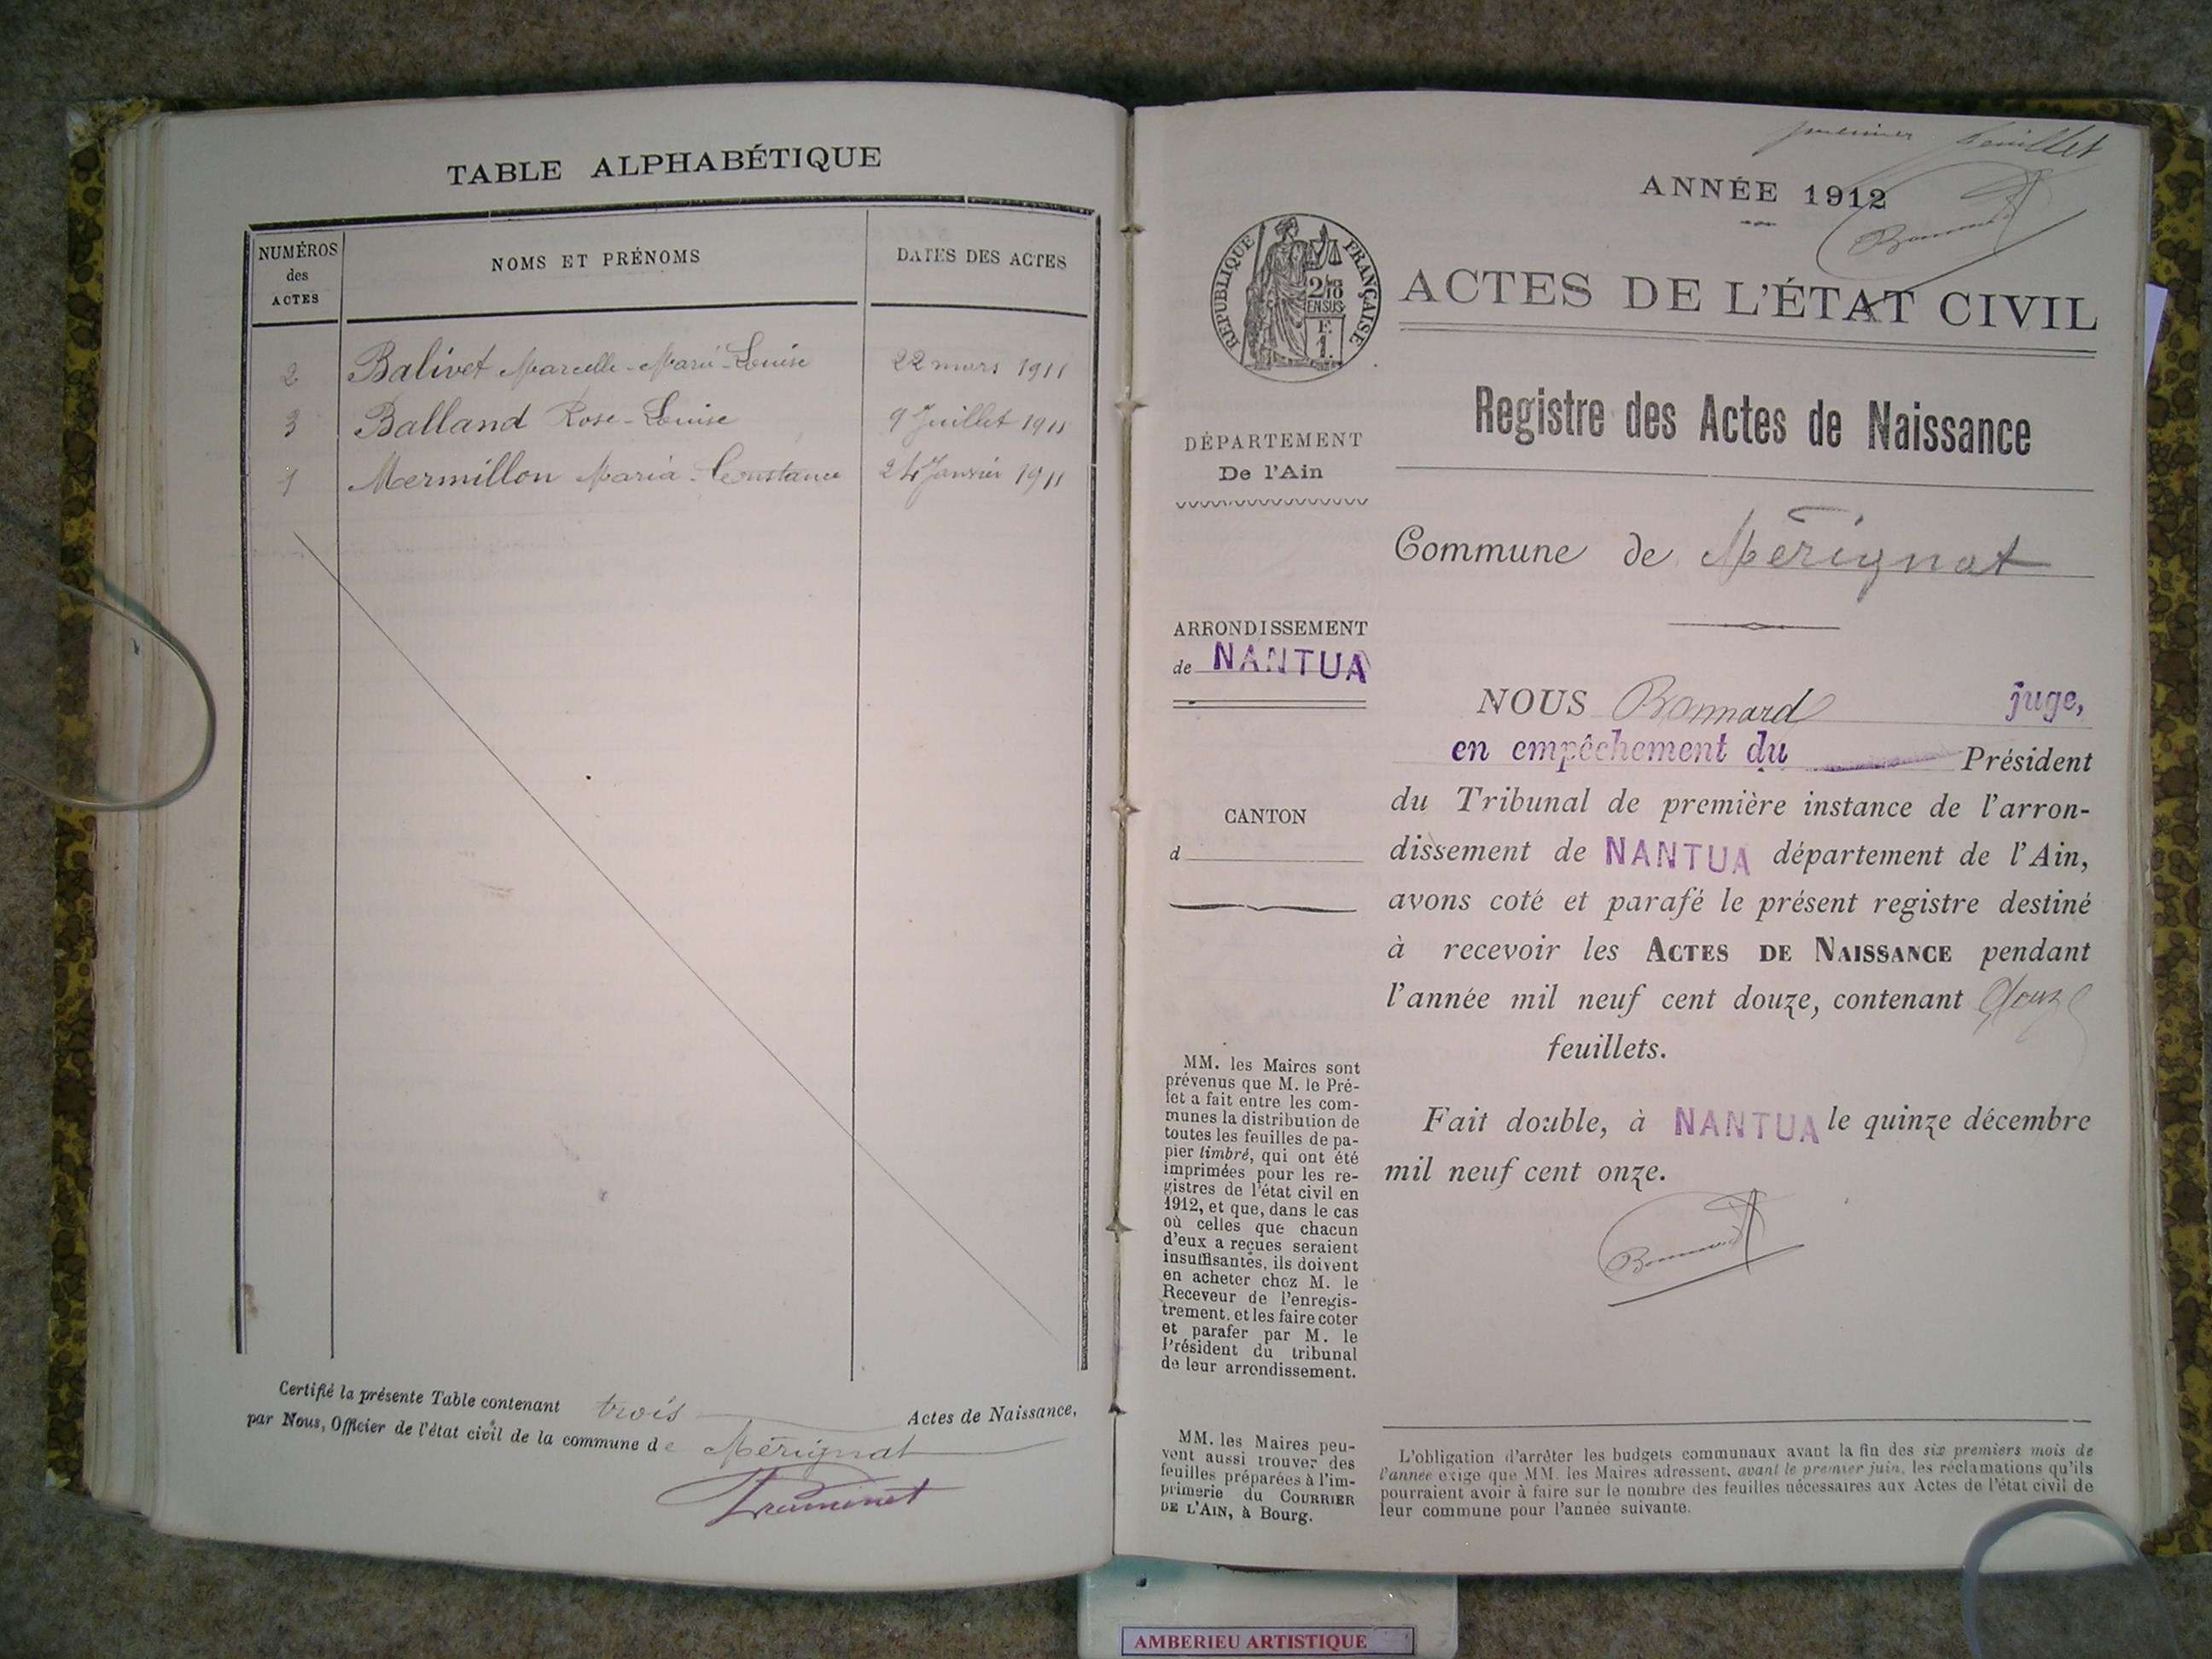 TABLE ALPHABÉTIQUE
NUMÉROS
des
ACTES
NOMS ET PRÉNOMS
DATES DES ACTES
2 Balivet Marcelle-Marie-Louise 22 mars 1911
3 Balland Rose-Louise 9 Juillet 1911
1 Mermillon Maria-Constance 24 Janvier 1911
Certifié la présente Table contenant trois Actes de Naissance,
par Nous, Officier de l'état civil de la commune de Mérignat
premier feuillet
ANNÉE 1912
Bonnard
RÉPUBLIQUE FRANÇAISE
2/10
EN SUS
F.
1.
ACTES DE L'ÉTAT CIVIL
Registre des Actes de Naissance
DÉPARTEMENT
De l'Ain
Commune de Mérignat
ARRONDISSEMENT
de NANTUA
CANTON
d
NOUS Bonnard juge,
en empêchement du Président
du Tribunal de première instance de l'arron-
dissement de NANTUA département de l'Ain,
avons coté et parafé le présent registre destiné
à recevoir les ACTES DE NAISSANCE pendant
l'année mil neuf cent douze, contenant douze
feuillets.
Fait double, à NANTUA le quinze décembre
mil neuf cent onze.
Bonnard
MM. les Maires sont
prévenus que M. le Pré-
fet a fait entre les com-
munes la distribution de
toutes les feuilles de pa-
pier timbré, qui ont été
imprimées pour les re-
gistres de l'état civil en
1912, et que, dans le cas
où celles que chacun
d'eux a reçues seraient
insuffisantes, ils doivent
en acheter chez M. le
Receveur de l'enregis-
trement, et les faire coter
et parafer par M. le
Président du tribunal
de leur arrondissement.
MM. les Maires peu-
vent aussi trouver des
feuilles préparées à l'im-
primerie du COURRIER
DE L'AIN, à Bourg.
L'obligation d'arrêter les budgets communaux avant la fin des six premiers mois de
l'année exige que MM. les Maires adressent, avant le premier juin, les réclamations qu'ils
pourraient avoir à faire sur le nombre des feuilles nécessaires aux Actes de l'état civil de
leur commune pour l'année suivante.
AMBERIEU ARTISTIQUE